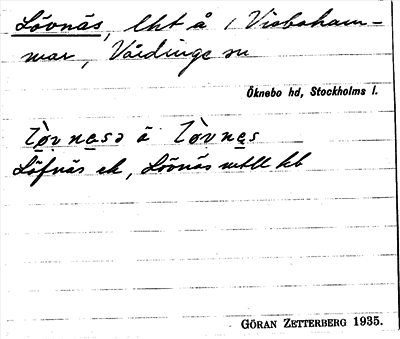 Lövnäs, lht å i Visboham-
mar, Vårdinge sn
Öknebo hd, Stockholms l.
lø̀vnɛsə å lø̀vnɛs
Löfnäs ek, Lövnäs mtll kb
GÖRAN ZETTERBERG 1935.